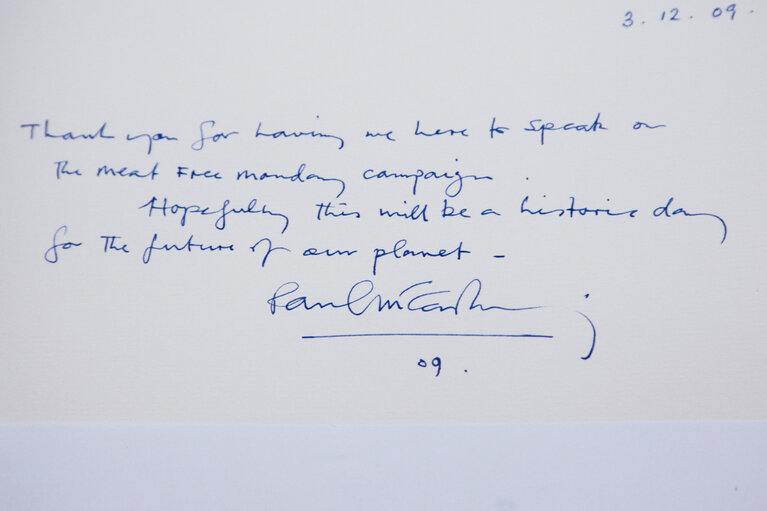 3.12.09.
Thank you for having me here to speak on
the meat Free monday campaign.
Hopefully this will be a historic day
for the future of our planet -
Paul McCartney
09.